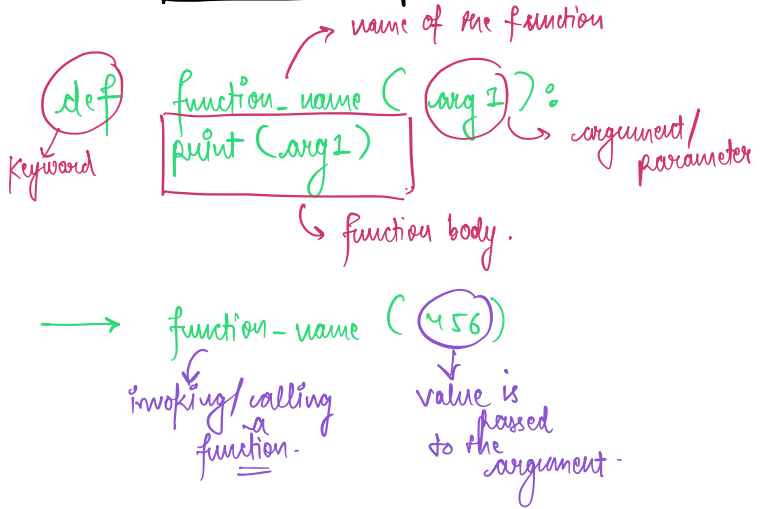 name of the function
def function_name ( arg1 ) :
argument/
parameter
Keyword
print (arg1)
function body .
function_name ( 456 )
invoking/ calling
a
function.
value is
passed
to the
argument.